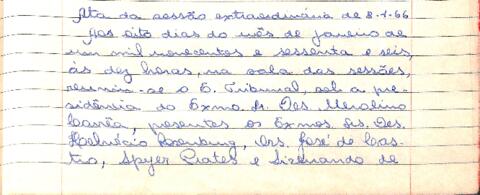 Ata da sessão extraordinária de 8-1-66
Aos oito dias do mês de janeiro de
um mil novecentos e sessenta e seis,
às dez horas, na sala das sessões,
reuniu-se o E. Tribunal, sob a pre-
sidência do Exmo. Sr. Des. Merolino
Corrêa, presentes os Exmos. Srs. Des.
Helvécio Rosenburg, Drs. José de Cas-
tro, Spyer Prates e Sizenando de